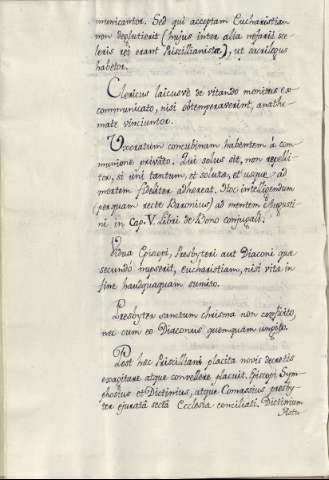 municantor. Sed qui acceptam Eucharistiam
non deglutierit (hujus inter alia nefarii sce
leris rei erant Priscillianistæ), ut sacrilegus
habetor.
Clericus laicusvè de vitando monitus ex-
communicato, nisi obtemperaverint, anathe
mate vinciuntor.
Uxoratum concubinam habentem à com
munione privato. Qui solus sit, non repelli
tor, si uni tantum, et soluta, et usque ad
mortem fideliter adhereat. Hoc intelligendum
(perquam recte Baronius) ad mentem August
ni in Cap. V. Libri de Bono conjugali.
Vidua Episcopi, Presbyteri aut Diaconi quæ
secundò nupserit, eucharistiam, nisi vita in
fine haudquaquam sumito.
Presbyter sanctum chrisma non conficito,
nec cum eo Diaconus quemquam ungito.
Post hec Priscilliani placita novis decretis
exagitare atque convellere placuit. Episcopi Sym
phosius et Dictinius, atque Comassius presby
ter ejurata secta Ecclesia conciliati. Dictinium